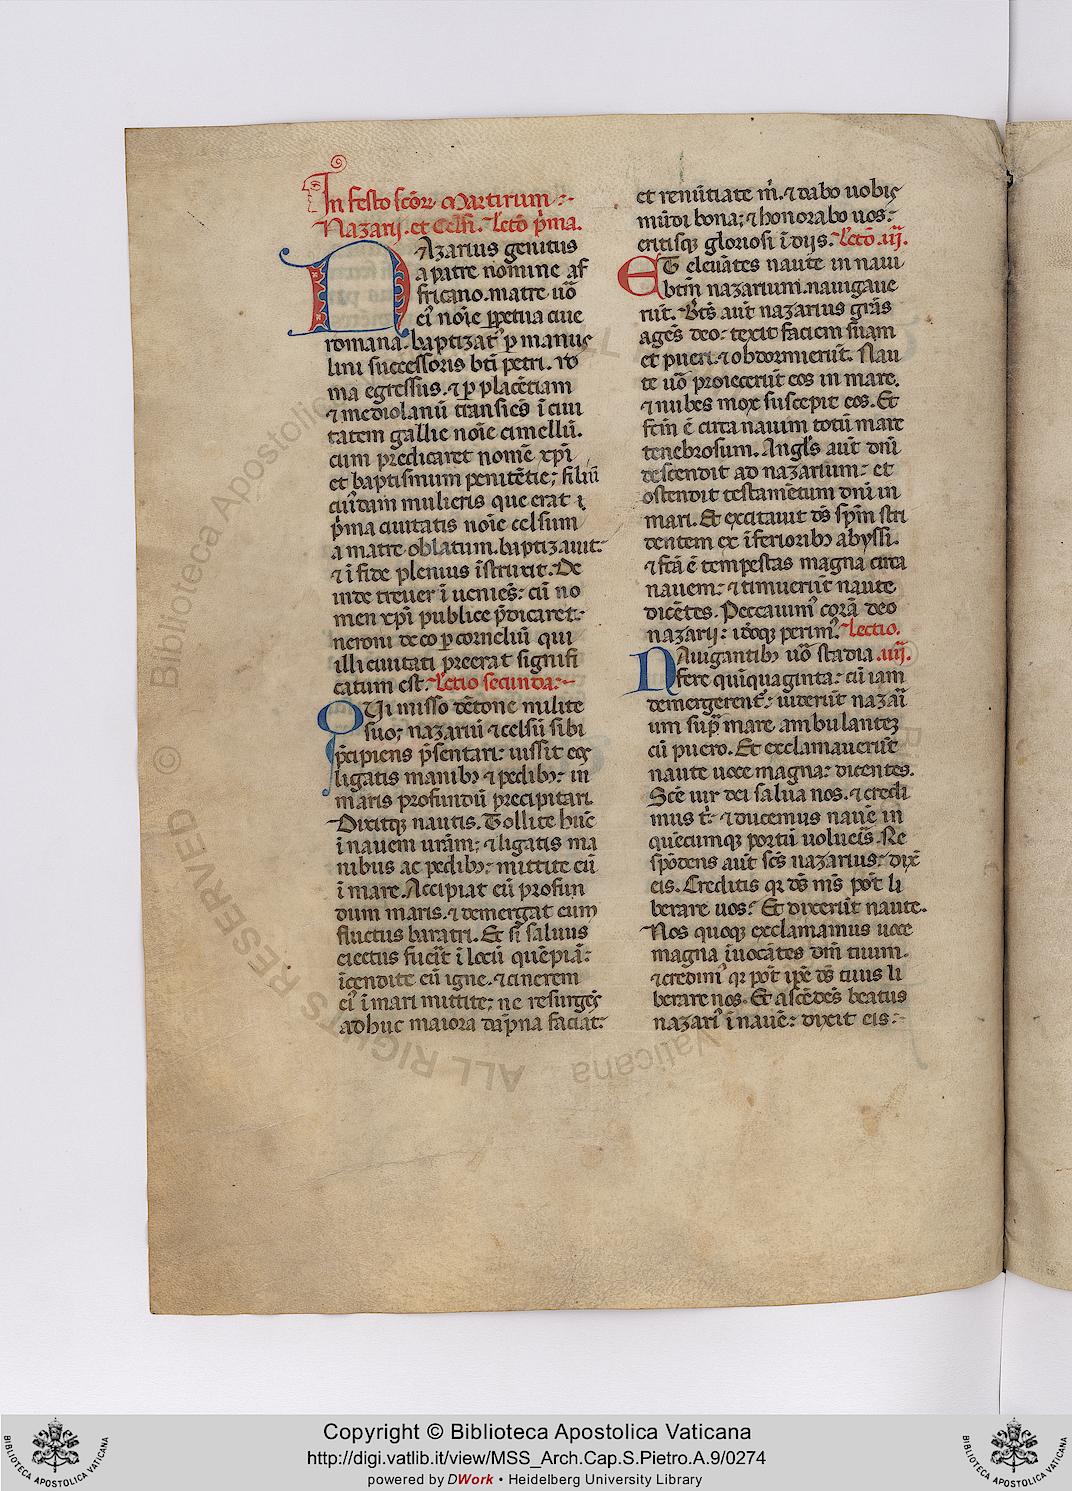 In festo scõꝝ Martirum :·
Nazarij. et Celsi. Lectõ p̃ma.
NAzarius genitus
a patre nomine af
fricano. matre uõ
ei' noĩe ꝑpetua ciue
romana. baptizat' ꝑ manus
lini successoris bti petri. ro
ma egressus. ⁊ ꝑ placẽtiam
⁊ mediolanũ transiẽs ĩ ciui
tatem gallie noĩe cimellũ.
cum predicaret nomẽ xp̃i
et baptismum penitẽtie; filiũ
cuiũdam mulieris que erat ĩ
p̃ma ciuitatis noĩe celsum
a matre oblatum. baptizauit:
⁊ ĩ fide plenius ĩstruxit. De
inde treuer ĩ ueniẽs: cũ no
men xp̃i publice p̃dicaret:
neroni de eo ꝑ corneliũ qui
illi ciuitati preerat signifi
catum est. Lectio secunda:·
QUi misso detone milite
suo; nazariũ ⁊ celsũ sibi
p̃cipiens p̃sentari: iussit eos
ligatis manibꝫ ⁊ pedibꝫ: in
maris profundũ precipitari.
Dixitqꝫ nautis. Tollite hũc
ĩ nauem ur̃am; ⁊ ligatis ma
nibus ac pedibꝫ: mittite eũ
ĩ mare. Accipiat eũ profun
dum maris. ⁊ demergat eum
fluctus baratri. Et si saluus
eiectus fuerit ĩ locũ quẽpiã:
ĩcendite eũ igne. ⁊ cinerem
ei' ĩ mari mittite; ne resurgẽs
adhuc maiora dãpna faciat:
et renũtiate m̃. ⁊ dabo uobis
mũdi bona; ⁊ honorabo uos:
eritisqꝫ gloriosi ĩ dijs. Lectõ .iij.
ET eleuãtes naute in naui
btm̃ nazarium. nauigaue
rũt. Bt̃s aũt nazarius gr̃as
agẽs deo: texit faciem suam
et pueri. ⁊ obdormierũt. Nau
te uõ proiecerũt eos in mare.
⁊ nubes mox suscepit eos. Et
fctm̃ ẽ circa nauim totũ mare
tenebrosum. Angls̃ aũt dñi
descendit ad nazarium: et
ostendit testamẽtum dñi in
mari. Et excitauit ds̃ sp̃m stri
dentem ex ĩferioribꝫ abyssi.
⁊ fctã ẽ tempestas magna circa
nauem: ⁊ timuerũt naute
dicẽtes. Peccauim' corã deo
nazarij: idoqꝫ perim'. Lectio.
NAuigantibꝫ uõ stadia .iiij.
fere quĩquaginta: cũ iam
demergerent': uiderũt nazari
um supr̃ mare ambulantez
cũ puero. Et exclamauerũt
naute uoce magna: dicentes.
Scẽ uir dei salua nos. ⁊ credi
mus t̃: ⁊ ducemus nauẽ in
quẽcumqꝫ portũ uolueis̃. Re
spõdens aũt scs̃ nazarius: dix̃
eis. Creditis qꝛ ds̃ ms̃ pot̃ li
berare uos? Et dixerũt naute.
Nos quoqꝫ exclamamus uoce
magna ĩuocãtes dñm tuum.
⁊ credim' qꝛ pot̃ ip̃e ds̃ tuus li
berare nos. Et ascẽdẽs beatus
nazari' ĩ nauẽ: dixit eis:·
Copyright © Biblioteca Apostolica Vaticana
http://digi.vatlib.it/view/MSS_Arch.Cap.S.Pietro.A.9/0274
powered by DWork • Heidelberg University Library
BIBLIOTECA APOSTOLICA VATICANA
BIBLIOTECA APOSTOLICA VATICANA